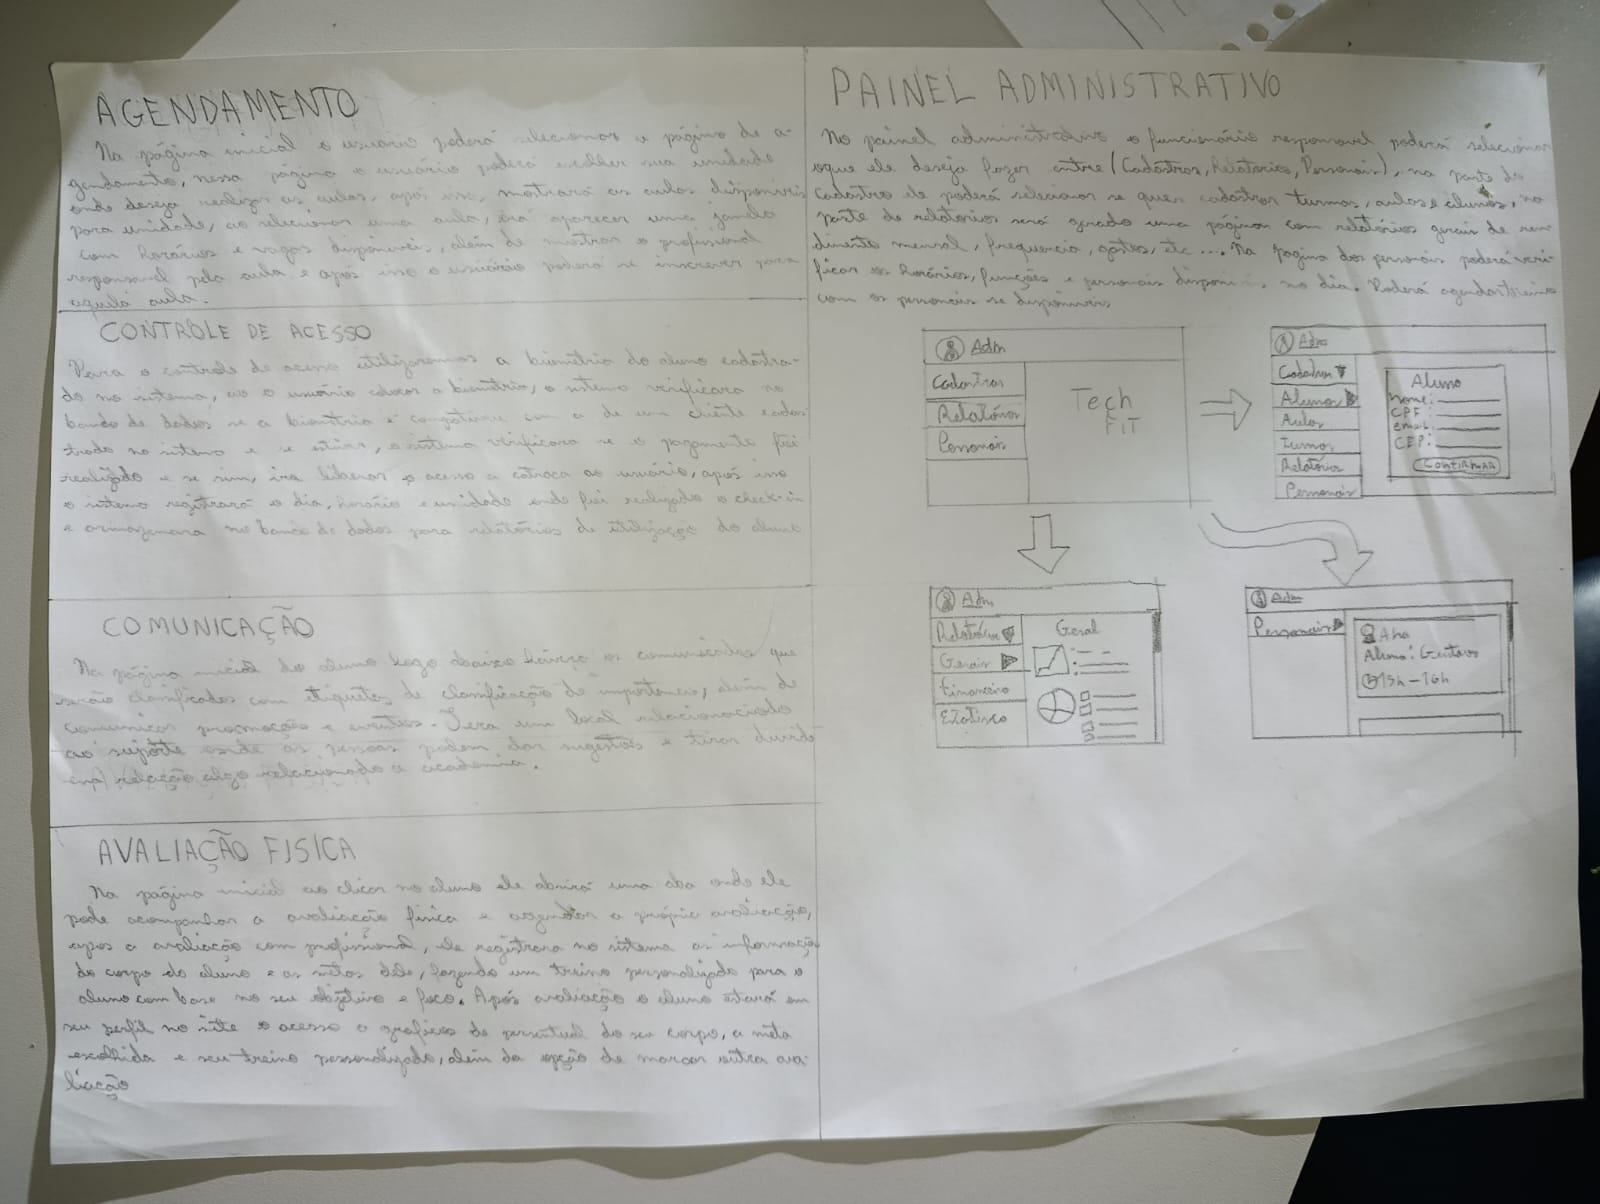 AGENDAMENTO
Na página inicial o usuário poderá selecionar a página de a-
gendamento, nessa página o usuário poderá escolher sua unidade
onde deseja realizar as aulas, após isso, mostrará as aulas disponiveis
para unidade, ao selecionar uma aula, irá aparecer uma janela
com horários e vagas disponiveis, além de mostrar o profissional
responsavel pela aula e após isso o usuário poderá se inscrever para
aquela aula.
CONTROLE DE ACESSO
Para o controle de acesso utilizaremos a biometria do aluno cadastra-
do no sistema, ao o usuário colocar a biometria, o sistema verificara no
banco de dados se a biometria é compativel com a de um cliente cadas-
trado no sistema e se estiver, o sistema verificara se o pagamento foi
realizado e se sim, ira liberar o acesso a catraca ao usuário, após isso
o sistema registrará o dia, horário e unidade onde foi realizado o check-in
e armazenara no banco de dados para relatórios de utilização do aluno
COMUNICAÇÃO
Na página inicial do aluno logo abaixo haverá os comunicados que
serão classificados com etiquetas de classificação de importancia, além de
comunicar promoções e eventos. Tera um local relacionado
ao suporte onde as pessoas podem dar sugestões e tirar duvida
relação algo relacionado a academia.
AVALIAÇÃO FISICA
Na página inicial ao clicar no aluno ele abrirá uma aba onde ele
pode acompanhar a avaliação fisica e agendar a própria avaliação,
apos a avaliação com profissional, ele registrara no sistema as informação
do corpo do aluno e as metas dele, fazendo um treino personalizado para o
aluno com base no seu objetivo e foco. Após avaliação o aluno estará em
seu perfil no site o acesso a graficos de percentual do seu corpo, a meta
escolhida e seu treino personalizado, além da opção de marcar outra ava-
liação
PAINEL ADMINISTRATIVO
No painel administrativo o funcionário responsavel poderá selecionar
oque ele deseja fazer entre (Cadastros, Relatorios, Personais), na parte do
cadastro ele poderá selecionar se quer cadastrar turmas, aulas e alunos, na
parte de relatorios será gerado uma páginas com relatórios gerais de ren-
dimento mensal, frequencia, gastos, etc .... Na pagina dos personais poderá veri-
ficar os horários, funções e personais disponiveis no dia. Poderá agendar treino
com os personais se disponiveis
Adm
Cadastros
Relatórios
Personais
Tech
FIT
Adm
Cadastros
Alunos
Aulas
Turmas
Relatórios
Personais
Aluno
Nome:
CPF:
email:
CEP:
CONFIRMAR
Adm
Relatórios
Gerais
Financeiro
Geral
Adm
Personais
Ana
Aluno: Gustavo
15h - 16h